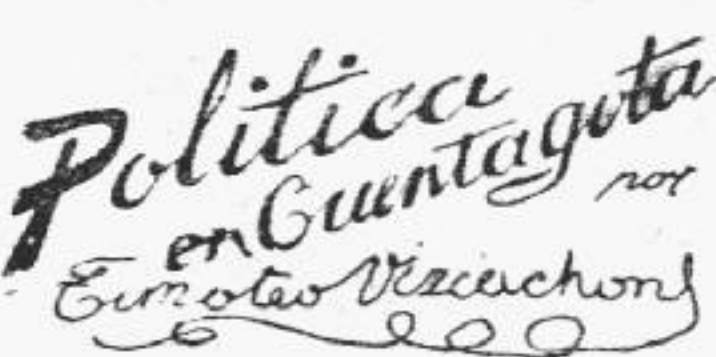 Politica
en Cuentagota
por
Timoteo Vizcachon